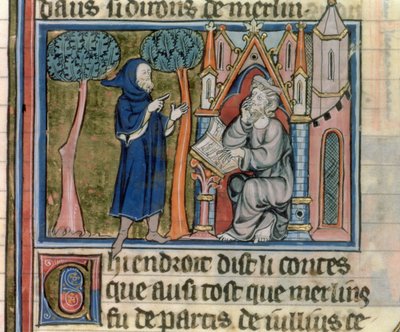 dans si dirons de merlin
Ci endroit dist li contes
que ausi tost que merlins
fu departis de iullius ce